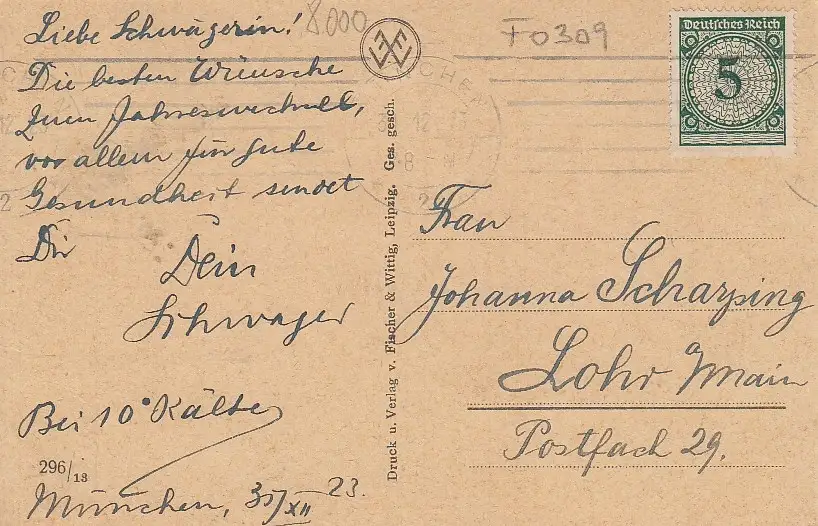 Liebe Schwägerin!
Die besten Wünsche
zum Jahreswechsel,
vor allem für gute
Gesundheit sendet
Dir
Dein
Schwager
Bei 10° Kälte
296/13
München, 31/XII 23.
8000
F0309
Druck u. Verlag v. Fischer & Wittig, Leipzig. Ges. gesch.
Deutsches Reich
5
Frau
Johanna Scharping
Lohr Main
Postfach 29.